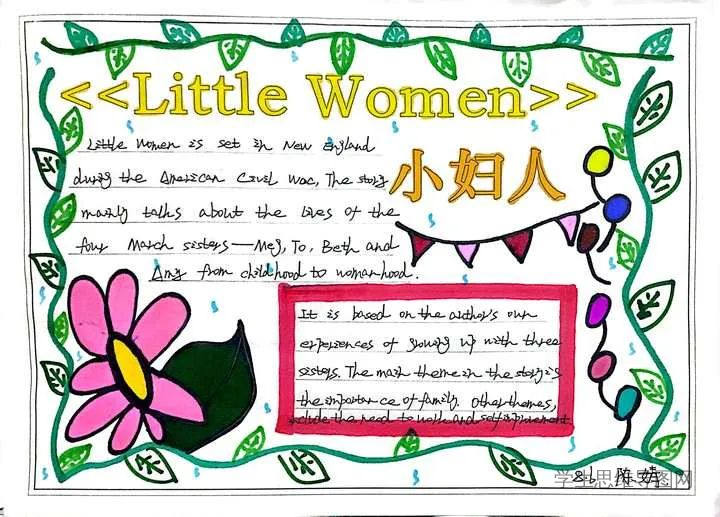 <<Little Women>>
小妇人
Little Women is set in New England
during the American Civil Wac, The story
mainly talks about the lives of the
four March sisters—Meg, To, Beth and
Amy from childhood to womanhood.
It is based on the author's own
experiences of growing up with three
sisters. The main theme in the story is
the importance of family. Other themes,
include the need to work and self-improvement
学生思维导图网